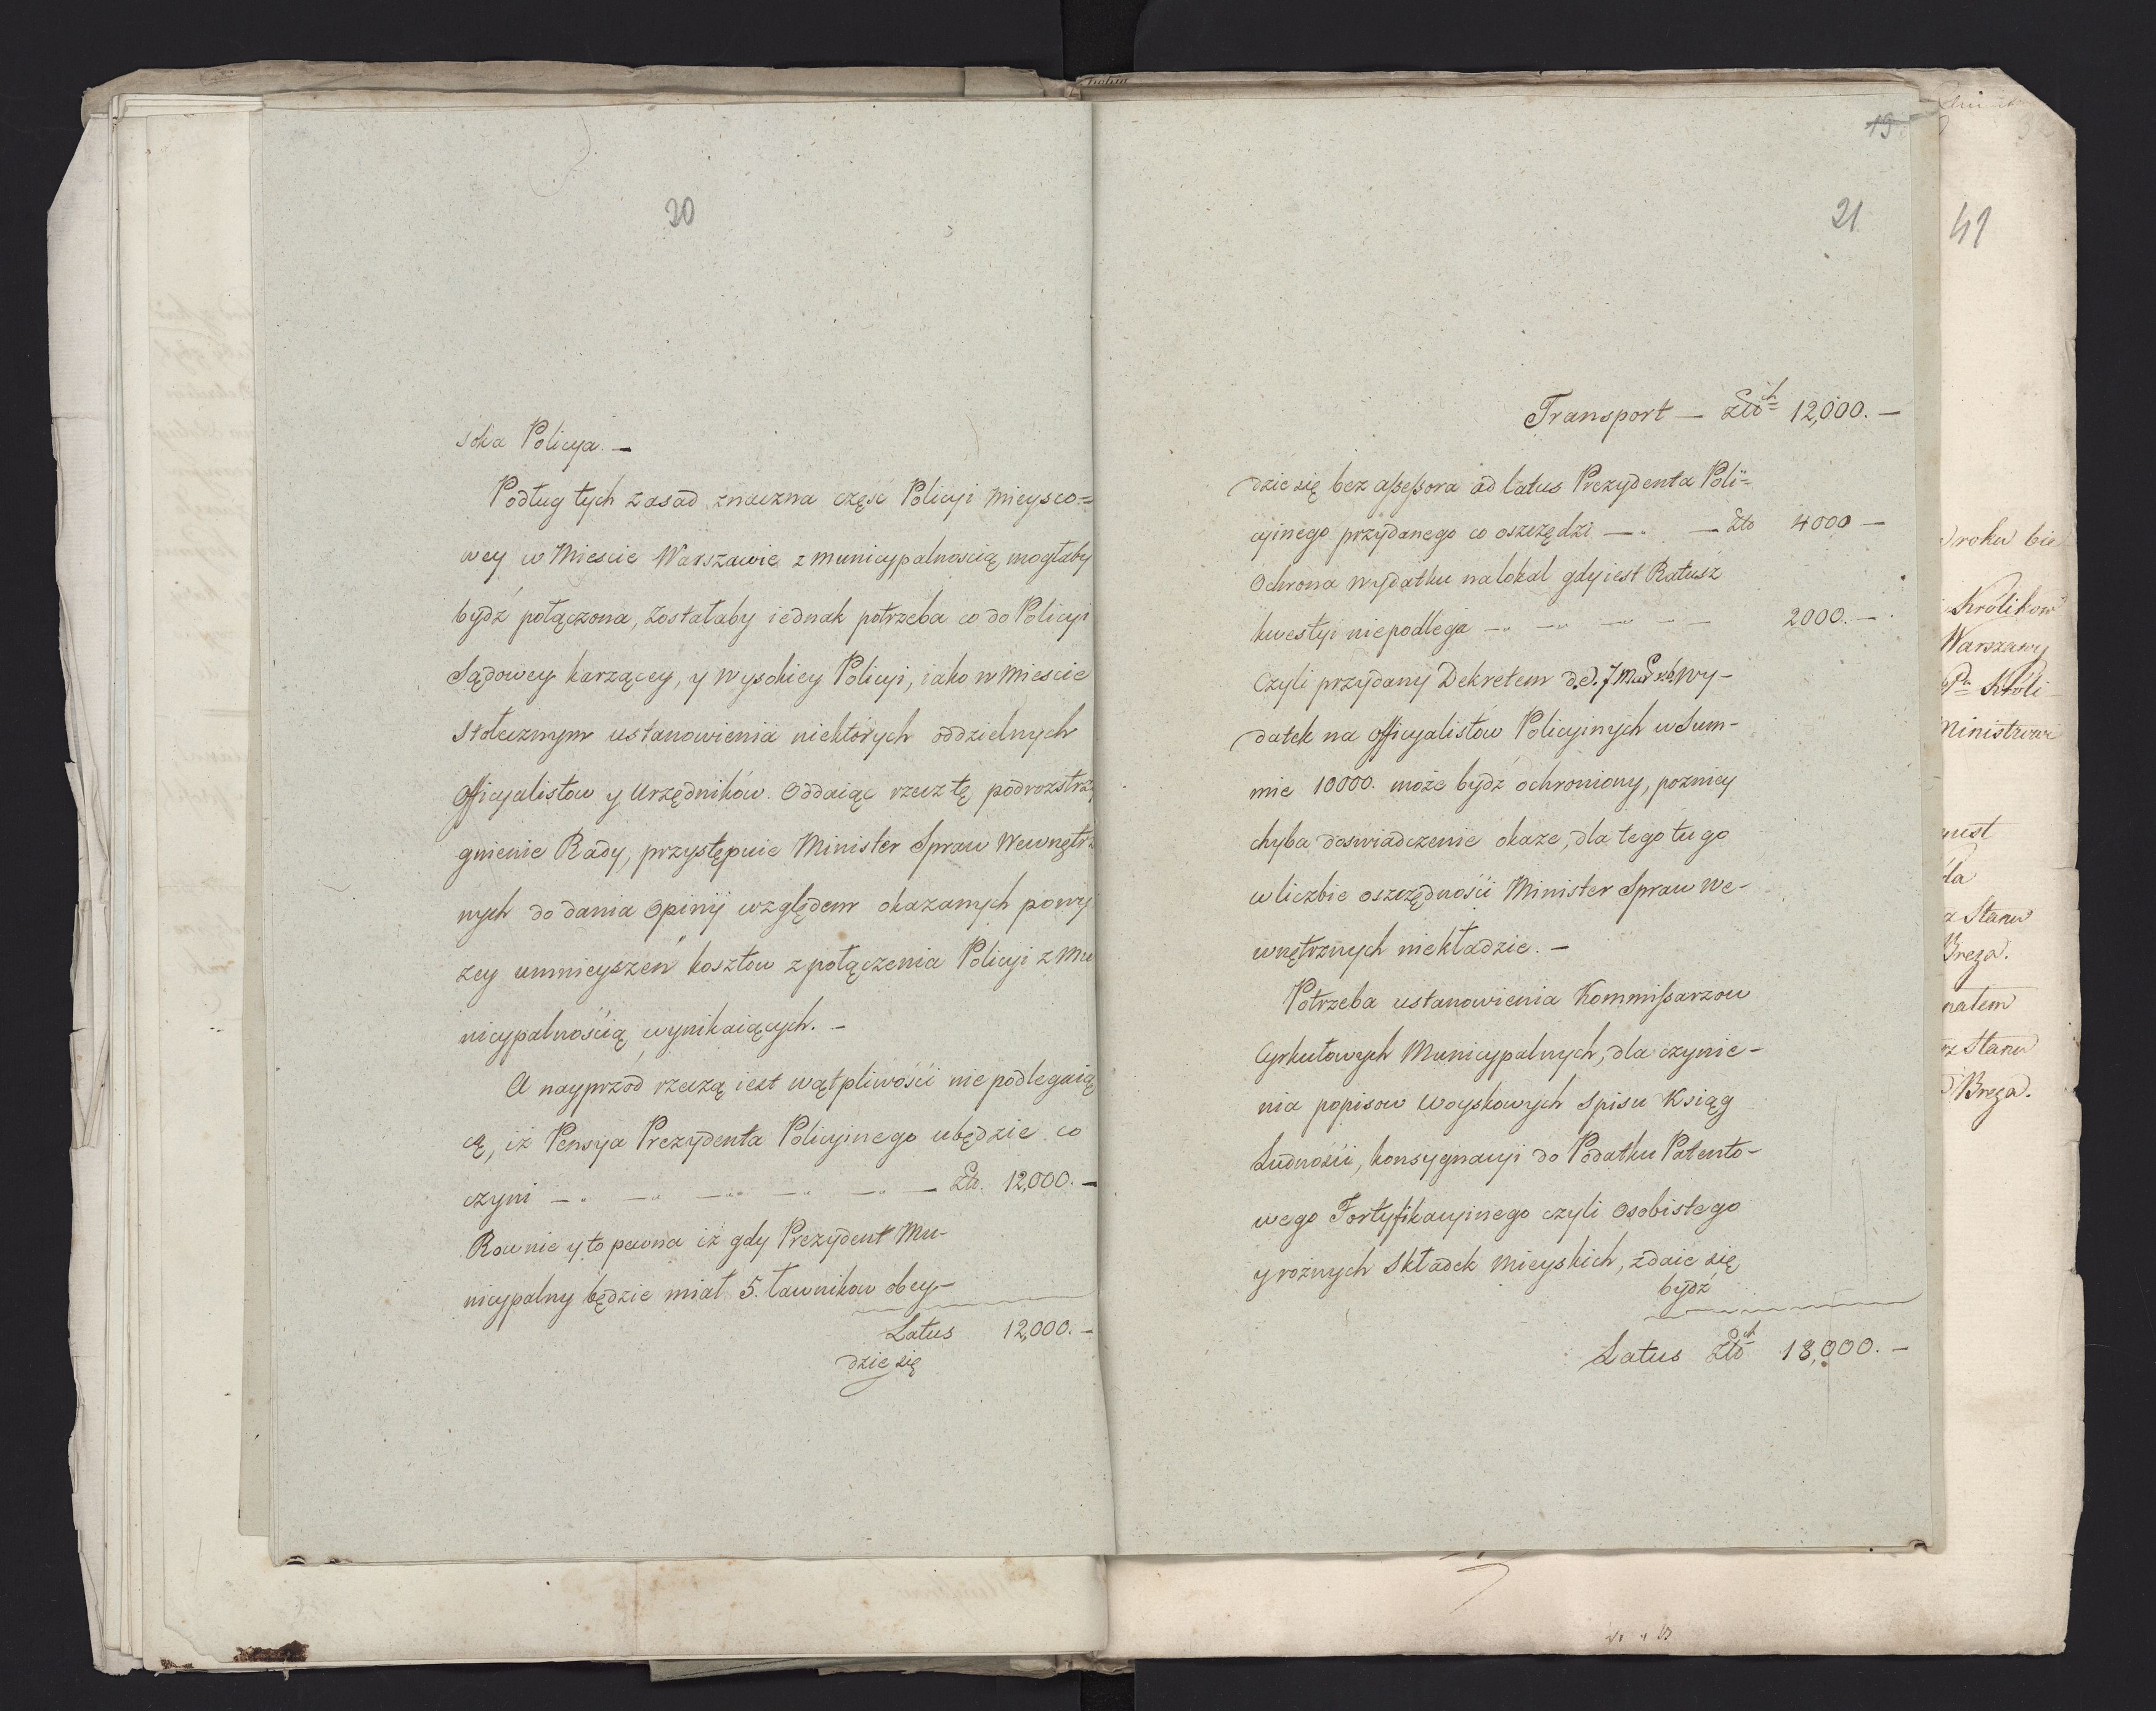 20
soka Policya. —
Podług tych zasad, znaczna częsc Policyi Mieysco=
wey w Miescie Warszawie z Municypalnoscią mogłaby
bydź połączona, Zostałaby iednak potrzeba co do Policyi
Sądowey karzącey, y wysokiey Policyi, iako w Miescie
Stołecznym ustanowienia niektórych oddzielnych
Officyalistow y Urzędników. Oddaiąc rzecz tę podrozstrzy
gnienie Rady, przystępuie Minister Spraw Wewnętrz
nych do dania Opinij względem okazanych powy
zey umnieyszeń kosztow z połączenia Policyi z Mu
nicypalnością wynikaiących. —
A nayprzod rzeczą iest wątpliwości nie podlegaią
cą, iż Pensya Prezydenta Policyinego ubędzie co
czyni — — — — — — Zł. 12,000. —
Rownie y to pewna iż gdy Prezydent Mu-
nicypalny będzie miał 5. ławnikow obey-
Latus 12,000. —
dzie się
19
21
Transport — Złoch 12,000. —
dzie się bez assessora ad latus Prezydenta Poli=
cyinego przydanego co oszczędzi — — Zło 4000 —
Ochrona wydatku na lokal gdy iest Ratusz
kwestyi niepodlega — — — — — 2000. —
Czyli przydany Dekretem d.d. 7 Wy-
datek na Officyalistow Policyinych w Sum-
mie 10000. może bydź ochroniony, pozniey
chyba doswiadczenie okaze, dla tego tu go
w liczbie oszczędności Minister Spraw We-
wnętrznych niekładzie. —
Potrzeba ustanowienia Kommissarzow
Cyrkułowych Municypalnych, dla czynie-
nia popisow Woyskowych Spisu Ksiąg
Ludności, konsygnacyi do Podatku Patento-
wego Fortyfikacyinego czyli Osobistego
y rożnych Składek Mieyskich, zdaie się
bydź
Latus Złoch 18,000. —
41
roku bie
Królikow
Warszawy
Króli
Ministrowi
la
Stanu
Breza.
natem
rz Stanu
Breza.